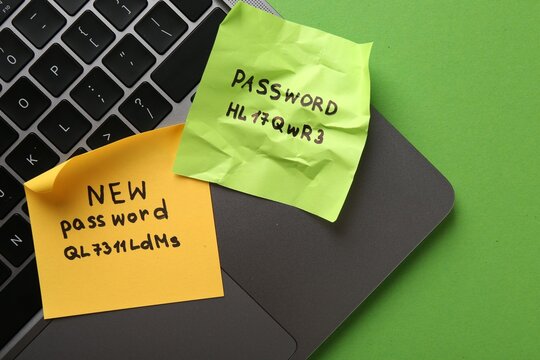 PASSWORD
HL17QwR3
NEW
password
QL7311LdMs